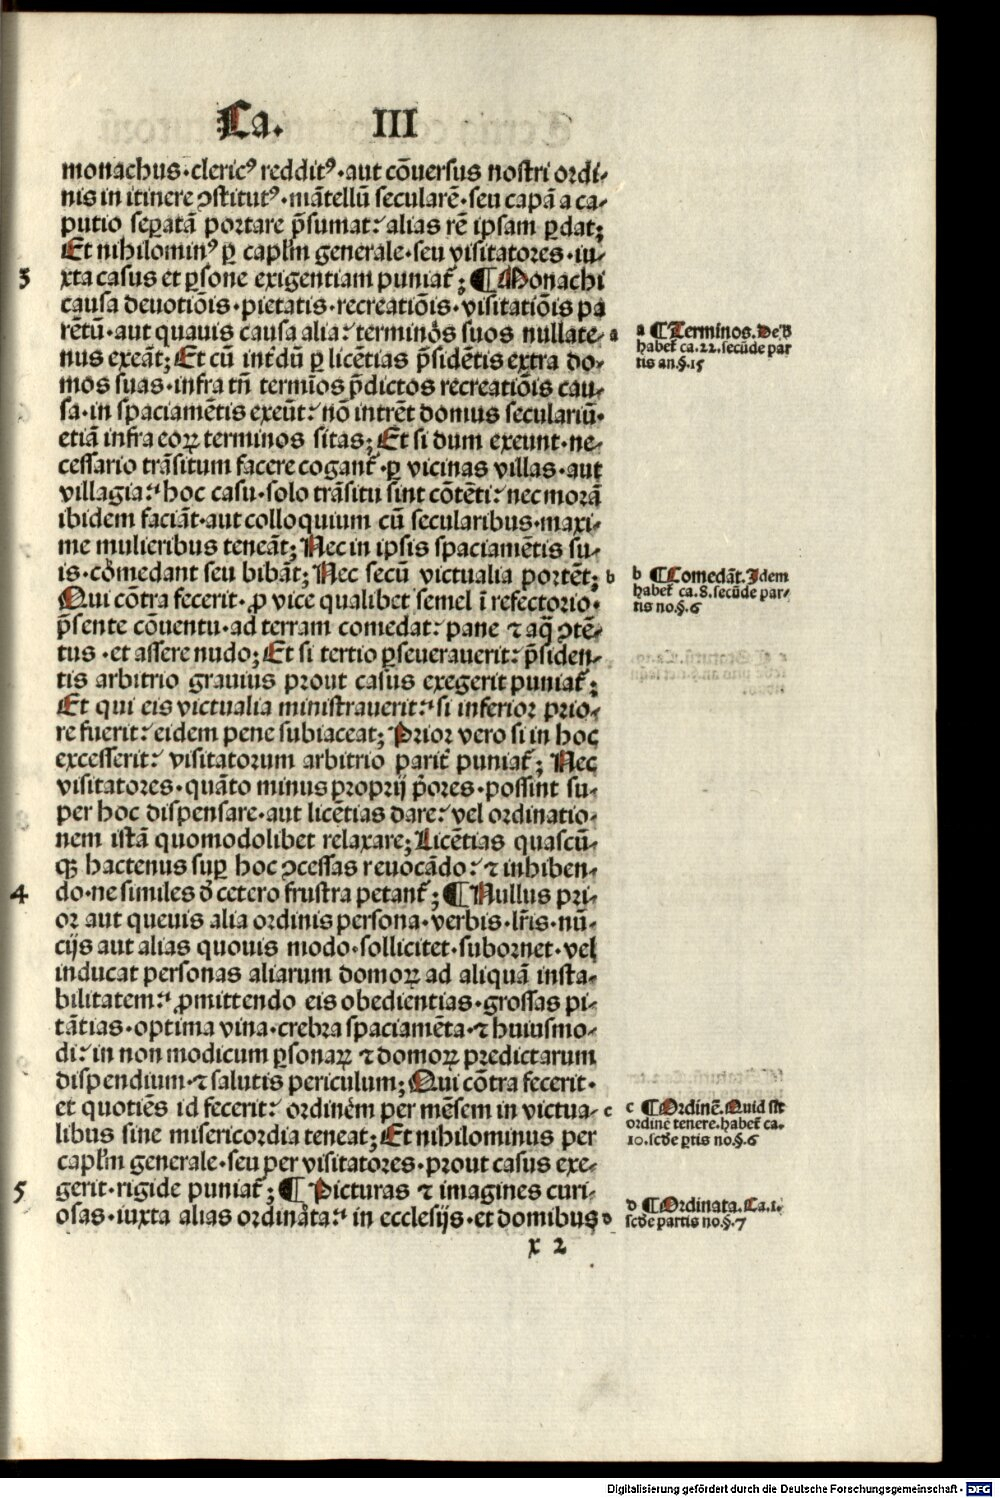 Ca. III
monachus·clericꝰ redditꝰ·aut cōuersus nostri ordi-
nis in itinere ꝯstitutꝰ·mātellū secularē·seu capā a ca-
putio seꝑatā portare p̄sumat: alias rē ipsam ꝑdat;
Et nihilominꝰ ꝑ capl̄m generale·seu visitatores·iu-
3 xta casus et ꝑsone exigentiam puniat᷑; ¶Monachi
causa deuotiōis·pietatis·recreatiōis·visitatiōis pa
rētū·aut quauis causa alia: terminos suos nullate- a
nus exeāt; Et cū int᷑dū ꝑ licētias p̄sidētis extra do-
mos suas·infra tn̄ termīos p̄dictos recreatiōis cau-
sa·in spaciamētis exeūt: nō intrēt domus seculariū·
etiā infra eoꝝ terminos sitas; Et si dum exeunt·ne-
cessario trāsitum facere cogant᷑·ꝑ vicinas villas·aut
villagia: hoc casu·solo trāsitu sint cōtēti: nec morā
ibidem faciāt·aut colloquium cū secularibus·maxi-
me mulieribus teneāt; Nec in ipsis spaciamētis su-
is·comedant seu bibāt; Nec secū victualia portēt; b
Qui cōtra fecerit·ꝓ vice qualibet semel ī refectorio·
p̄sente cōuentu·ad terram comedat: pane ⁊ aq̄ ꝯtē-
tus·et assere nudo; Et si tertio ꝑseuerauerit: p̄siden-
tis arbitrio grauius prout casus exegerit puniat᷑;
Et qui eis victualia ministrauerit: si inferior prio-
re fuerit: eidem pene subiaceat; Prior vero si in hoc
excesserit: visitatorum arbitrio parit᷑ puniat᷑; Nec
visitatores·quāto minus proprij p̄ores·possint su-
per hoc dispensare·aut licētias dare: vel ordinatio-
nem istā quomodolibet relaxare; Licētias quascū-
qꝫ hactenus suꝑ hoc ꝯcessas reuocādo: ⁊ inhiben-
4 do·ne similes đ cetero frustra petant᷑; ¶Nullus pri-
or aut queuis alia ordinis persona·verbis·lr̄is·nū-
cijs aut alias quouis modo·sollicitet·subornet·vel
inducat personas aliarum domoꝝ ad aliquā insta-
bilitatem: ꝓmittendo eis obedientias·grossas pi-
tātias·optima vina·crebra spaciamēta·⁊ huiusmo-
di: in non modicum ꝑsonaꝝ ⁊ domoꝝ predictarum
dispendium·⁊ salutis periculum; Qui cōtra fecerit·
et quotiēs id fecerit: ordinem per mēsem in victua- c
libus sine misericordia teneat; Et nihilominus per
capl̄m generale·seu per visitatores·prout casus exe-
5 gerit·rigide puniat᷑; ¶Picturas ⁊ imagines curi-
osas·iuxta alias ordinata: in ecclesijs·et domibus d
x 2
a ¶Terminos. De ꝙ
habet᷑ ca.22.secūde par
tis an.§.15
b ¶Comedāt. Idem
habet᷑ ca.8.secūde par-
tis no.§.6
c ¶Ordinē. Quid sit
ordinē tenere. habet᷑ ca.
10.scđe ꝑtis no.§.6
d ¶Ordinata. Ca.1.
scđe partis no.§.7
Digitalisierung gefördert durch die Deutsche Forschungsgemeinschaft - DFG